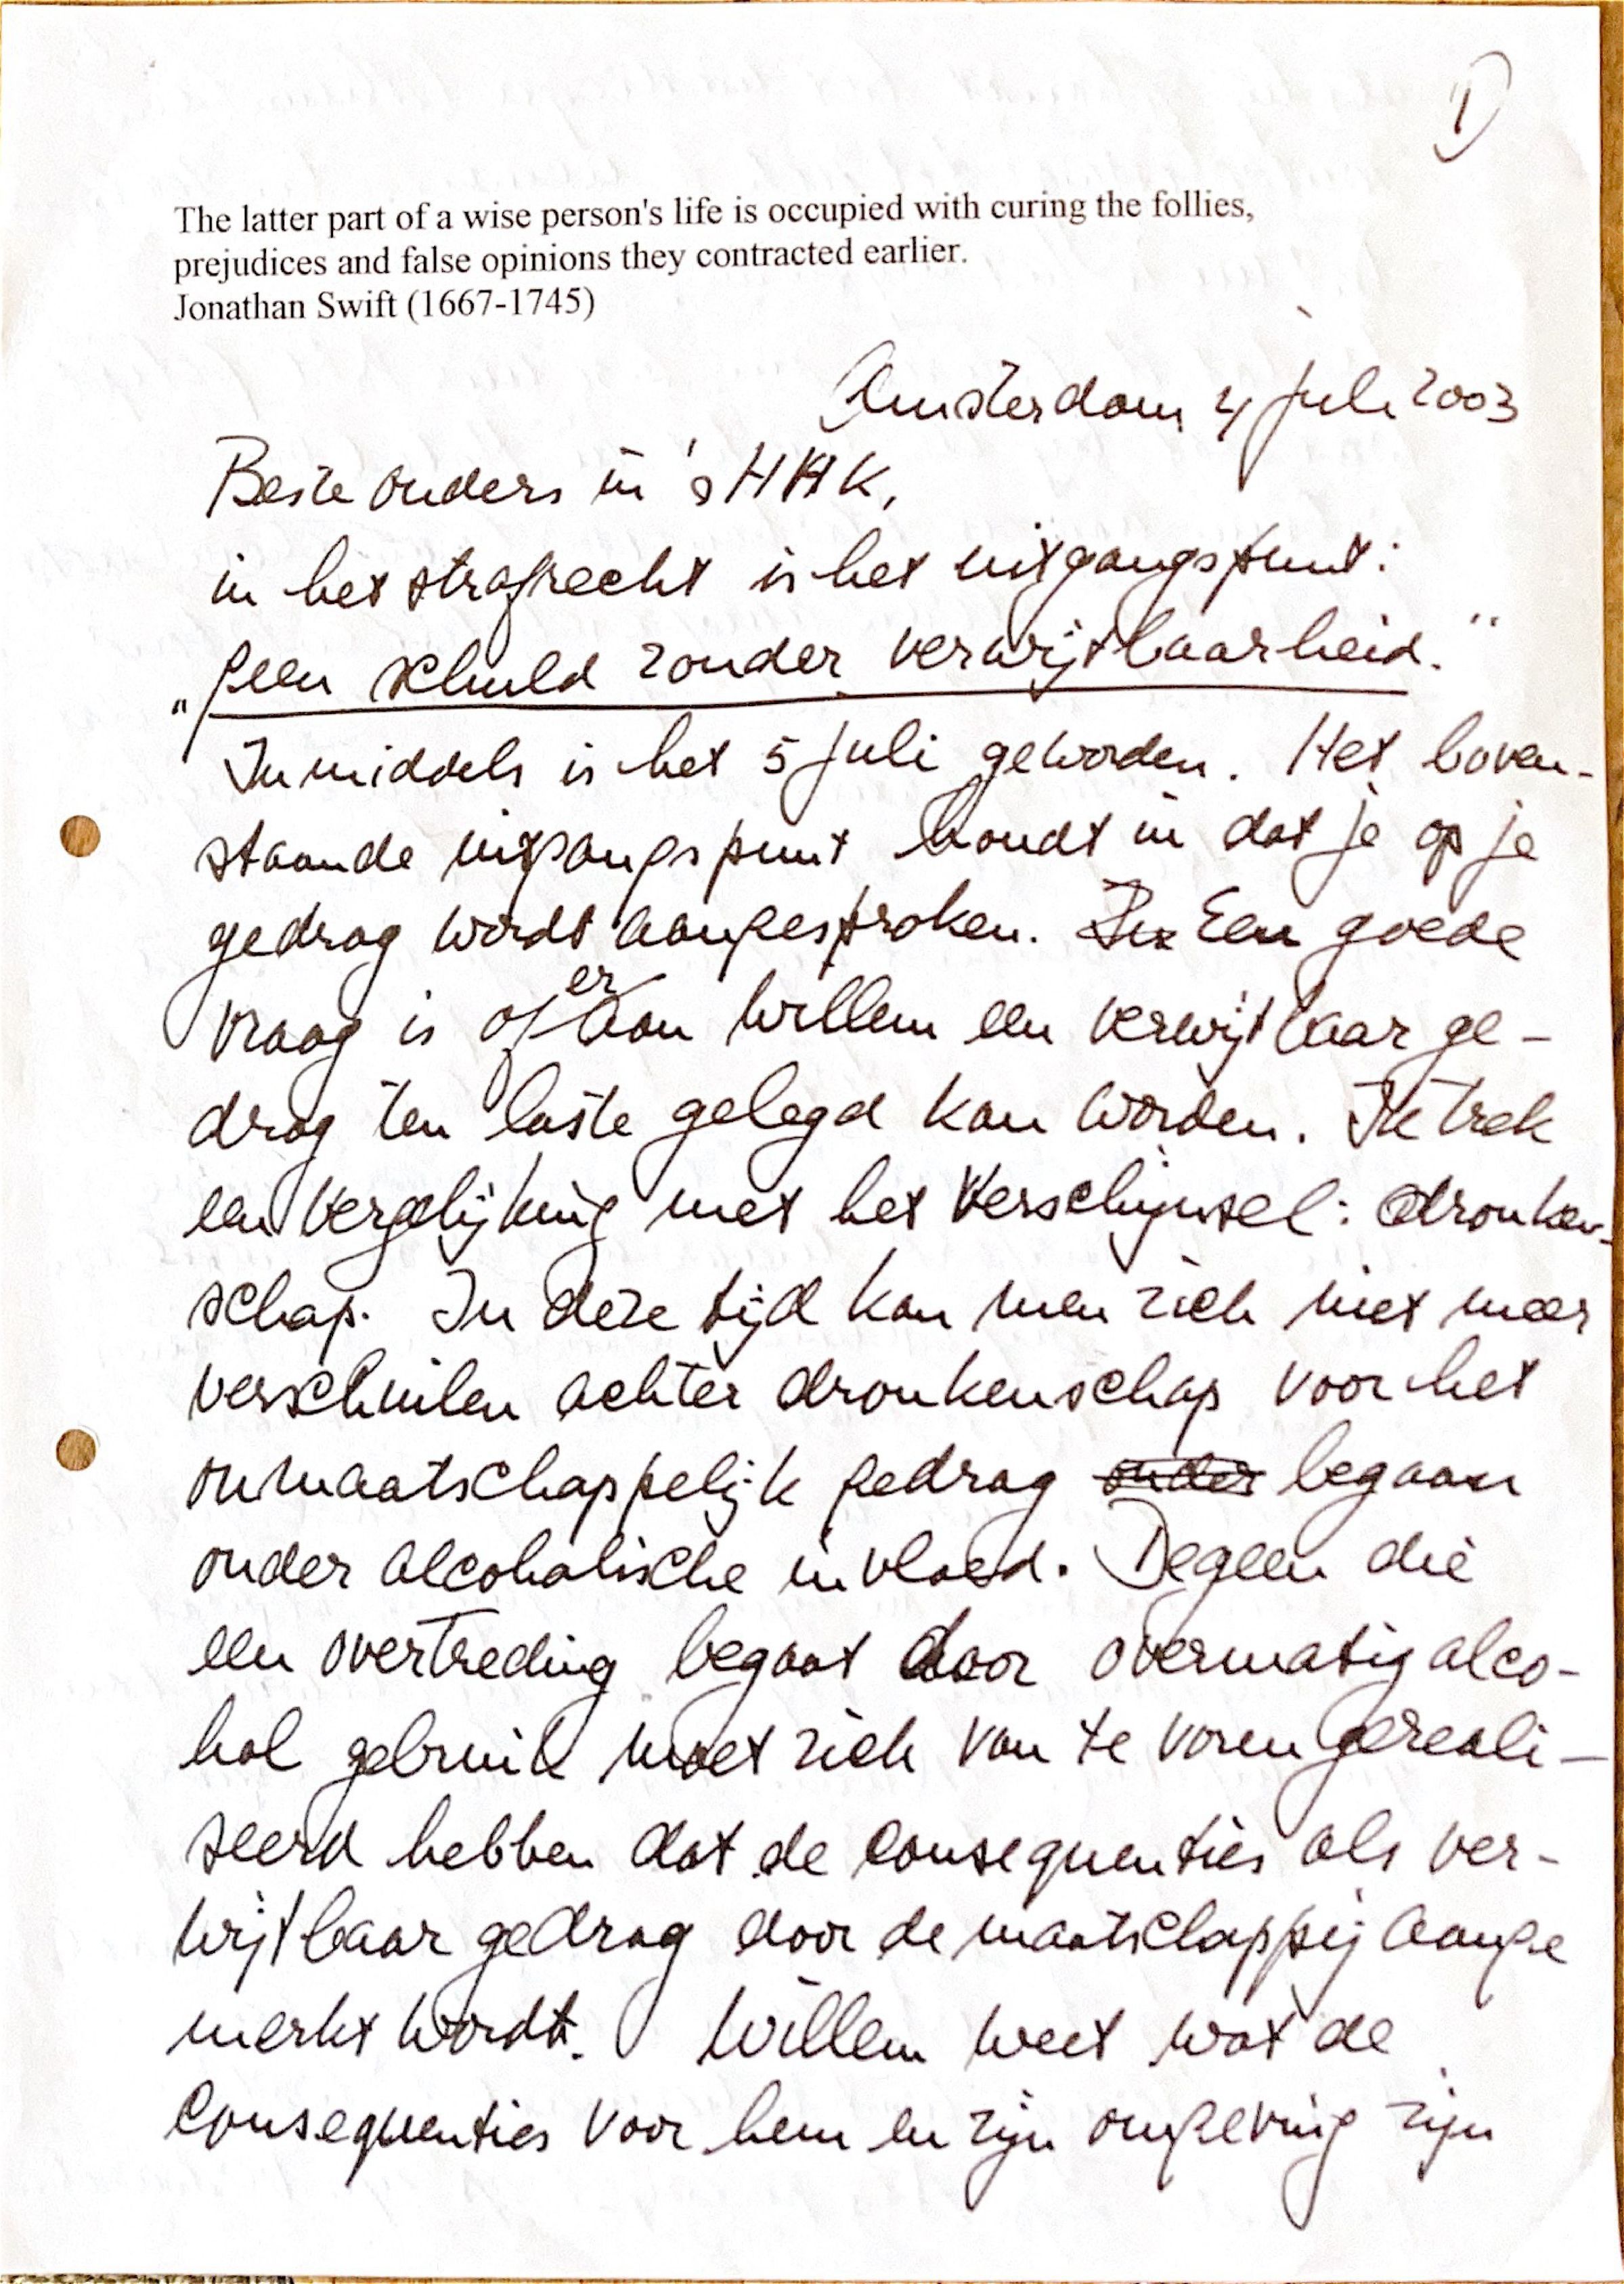 1)
The latter part of a wise person's life is occupied with curing the follies,
prejudices and false opinions they contracted earlier.
Jonathan Swift (1667-1745)
Amsterdam 4 juli 2003
Beste ouders in 's HHK,
in het strafrecht is het uitgangspunt:
„geen schuld zonder verwijtbaarheid."
Inmiddels is het 5 juli geworden. Het boven-
staande uitgangspunt houdt in dat je op je
gedrag wordt aangesproken. Een goede
vraag is of er aan Willem een verwijtbaar ge-
drag ten laste gelegd kan worden. Ik trek
een vergelijking met het verschijnsel: dronken-
schap. In deze tijd kan men zich niet meer
verschuilen achter dronkenschap voor het
onmaatschappelijk gedrag onder begaan
onder alcoholische invloed. Degeen die
een overtreding begaat door overmatig alco-
hol gebruik moet zich van te voren gereali-
seerd hebben dat de consequenties als ver-
wijtbaar gedrag door de maatschappij aange
merkt wordt. Willem weet wat de
consequenties voor hem en zijn omgeving zijn